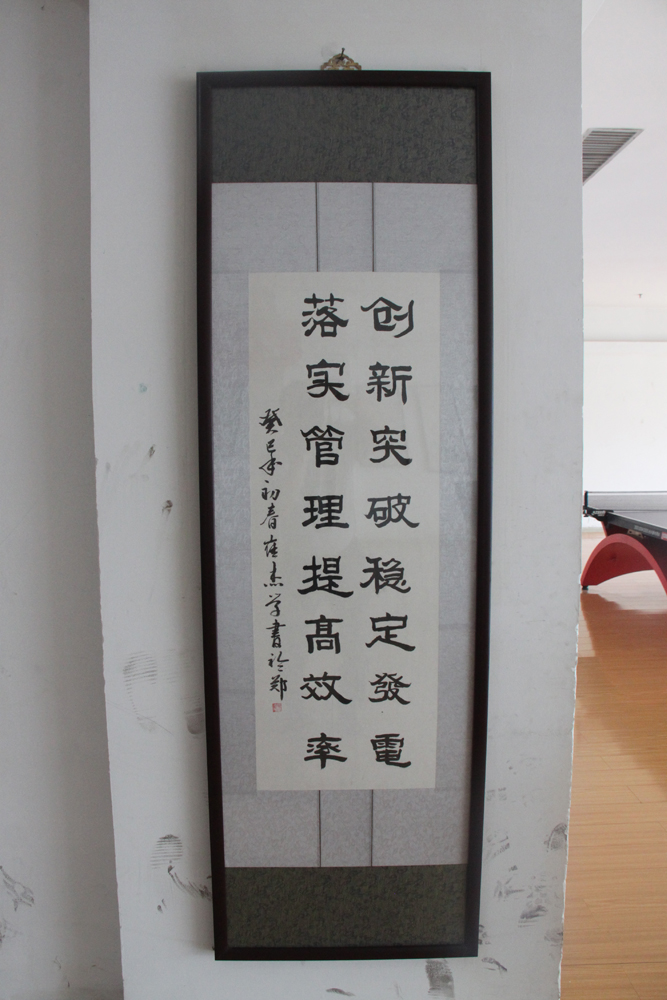 创新突破稳定發電
落实管理提高效率
癸巳年初春崔杰学書於郑